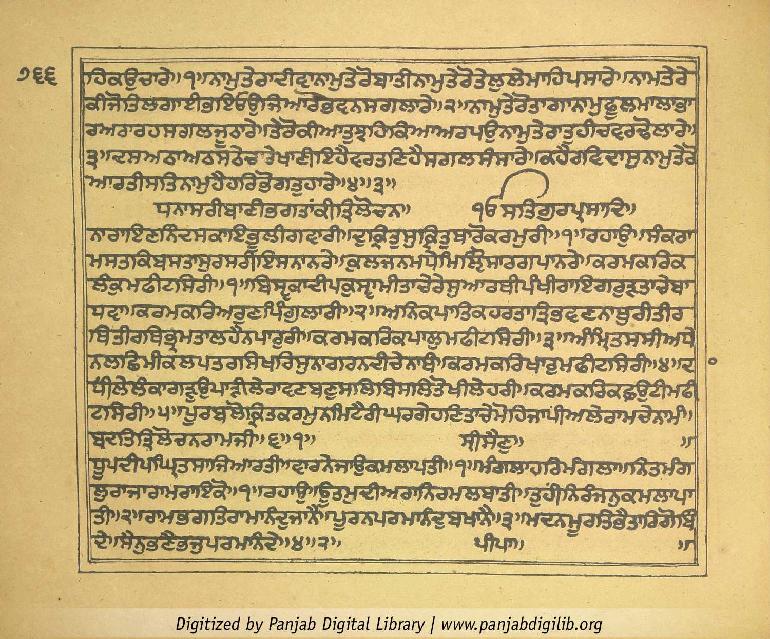 ੭੬੬
ਹਿਕਉਚਾਰੇ॥੧॥ਨਾਮੁਤੇਰਾਦੀਵਾਨਾਮੁਤੇਰੋਬਾਤੀਨਾਮੁਤੇਰੋਤੇਲੁਲੇਮਾਹਿਪਸਾਰੇ॥ਨਾਮਤੇਰੇ
ਕੀਜੋਤਿਲਗਾਈਭਾਇਓਉਜਿਆਰੋਭਵਨਸਗਲਾਰੇ॥੨॥ਨਾਮੁਤੇਰੋਤਾਗਾਨਾਮੁਫੂਲਮਾਲਾਭਾ
ਰਅਠਾਰਹਸਗਲਜੂਠਾਰੇ॥ਤੇਰੋਕੀਆਤੁਝਹਿਕਿਆਅਰਪਉਨਾਮੁਤੇਰਾਤੁਹੀਚਵਰਢੋਲਾਰੇ॥
੩॥ਦਸਅਠਾਅਠਸਠੇਚਾਰੇਖਾਣੀਇਹੈਵਰਤਣਿਹੈਸਗਲਸੰਸਾਰੇ॥ਕਹੈਰਵਿਦਾਸੁਨਾਮੁਤੇਰੋ
ਆਰਤੀਸਤਿਨਾਮੁਹੈਹਰਿਭੋਗਤੁਹਾਰੇ॥੪॥੩॥
ਧਨਾਸਰੀਬਾਣੀਭਗਤਾਂਕੀਤ੍ਰਿਲੋਚਨ॥ ੴ ਸਤਿਗੁਰਪ੍ਰਸਾਦਿ॥
ਨਾਰਾਇਣਨਿੰਦਸਿਕਾਇਭੂਲੀਗਵਾਰੀ॥ਦੁਕ੍ਰਿਤੁਸੁਕ੍ਰਿਤੁਥਾਰੋਕਰਮੁਰੀ॥੧॥ਰਹਾਉ॥ਸੰਕਰਾ
ਮਸਤਕਿਬਸਤਾਸੁਰਸਰੀਇਸਨਾਨਰੇ॥ਕੁਲਜਨਮਧੇਮਿਲ੍ਯਿੋਸਾਰਗਪਾਨਰੇ॥ਕਰਮਕਰਿਕ
ਲੰਕੁਮਫੀਟਸਿਰੀ॥੧॥ਬਿਸ੍ਵਕਾਦੀਪਕੁਸ੍ਵਾਮੀਤਾਚੇਰੇਸੁਆਰਥੀਪੰਖੀਰਾਇਗਰੁੜਤਾਚੇਬਾ
ਧਵਾ॥ਕਰਮਕਰਿਅਰੁਣਪਿੰਗੁਲਾਰੀ॥੨॥ਅਨਿਕਪਾਤਿਕਹਰਤਾਤ੍ਰਿਭਵਣਨਾਥੁਰੀਤੀਰ
ਥਿਤੀਰਥਿਭ੍ਰਮਤਾਲਹੈਨਪਾਰੁਰੀ॥ਕਰਮਕਰਿਕਪਾਲੁਮਫੀਟਸਿਰੀ॥੩॥ਅੰਮ੍ਰਿਤਸਸੀਅਧੇ
ਨਲਛਿਮੀਕਲਪਤਰਸਿਖਰਿਸੁਨਾਗਰਨਦੀਚੇਨਾਥੰ॥ਕਰਮਕਰਿਖਾਰੁਮਫੀਟਸਿਰੀ॥੪॥ਦ
ਧੀਲੇਲੰਕਾਗੜੁਉਪਾੜੀਲੇਰਾਵਣਬਣੁਸਲਿਬਿਸਲਿਤੋਖੀਲੇਹਰੀ॥ਕਰਮਕਰਿਕਛਉਟੀਮਫੀ
ਟਸਿਰੀ॥੫॥ਪੂਰਬਲੋਕ੍ਰਿਤਕਰਮੁਨਮਿਟੈਰੀਘਰਗੇਹਣਿਤਾਚੇਮੋਹਿਜਾਪੀਅਲੇਰਾਮਚੇਨਾਮੰ॥
ਬਦਤਿਤ੍ਰਿਲੋਚਨਰਾਮਜੀ॥੬॥੧॥ ਸ੍ਰੀਸੈਣੁ॥
ਧੂਪਦੀਪਘ੍ਰਿਤਸਾਜਿਆਰਤੀ॥ਵਾਰਨੇਜਾਉਕਮਲਾਪਤੀ॥੧॥ਮੰਗਲਾਹਰਿਮੰਗਲਾ॥ਨਿਤਮੰਗ
ਲੁਰਾਜਾਰਾਮਰਾਇਕੋ॥੧॥ਰਹਾਉ॥ਊਤਮੁਦੀਅਰਾਨਿਰਮਲਬਾਤੀ॥ਤੁਹੀਂਨਿਰੰਜਨੁਕਮਲਾਪਾ
ਤੀ॥੨॥ਰਾਮਭਗਤਿਰਾਮਾਨੰਦੁਜਾਨੈ॥ਪੂਰਨਪਰਮਾਨੰਦੁਬਖਾਨੈ॥੩॥ਮਦਨਮੂਰਤਿਭੈਤਾਰਿਗੋਬਿੰ
ਦੇ॥ਸੈਨੁਭਣੈਭਜੁਪਰਮਾਨੰਦੇ॥੪॥੨॥ ਪੀਪਾ॥
Digitized by Panjab Digital Library | www.panjabdigilib.org